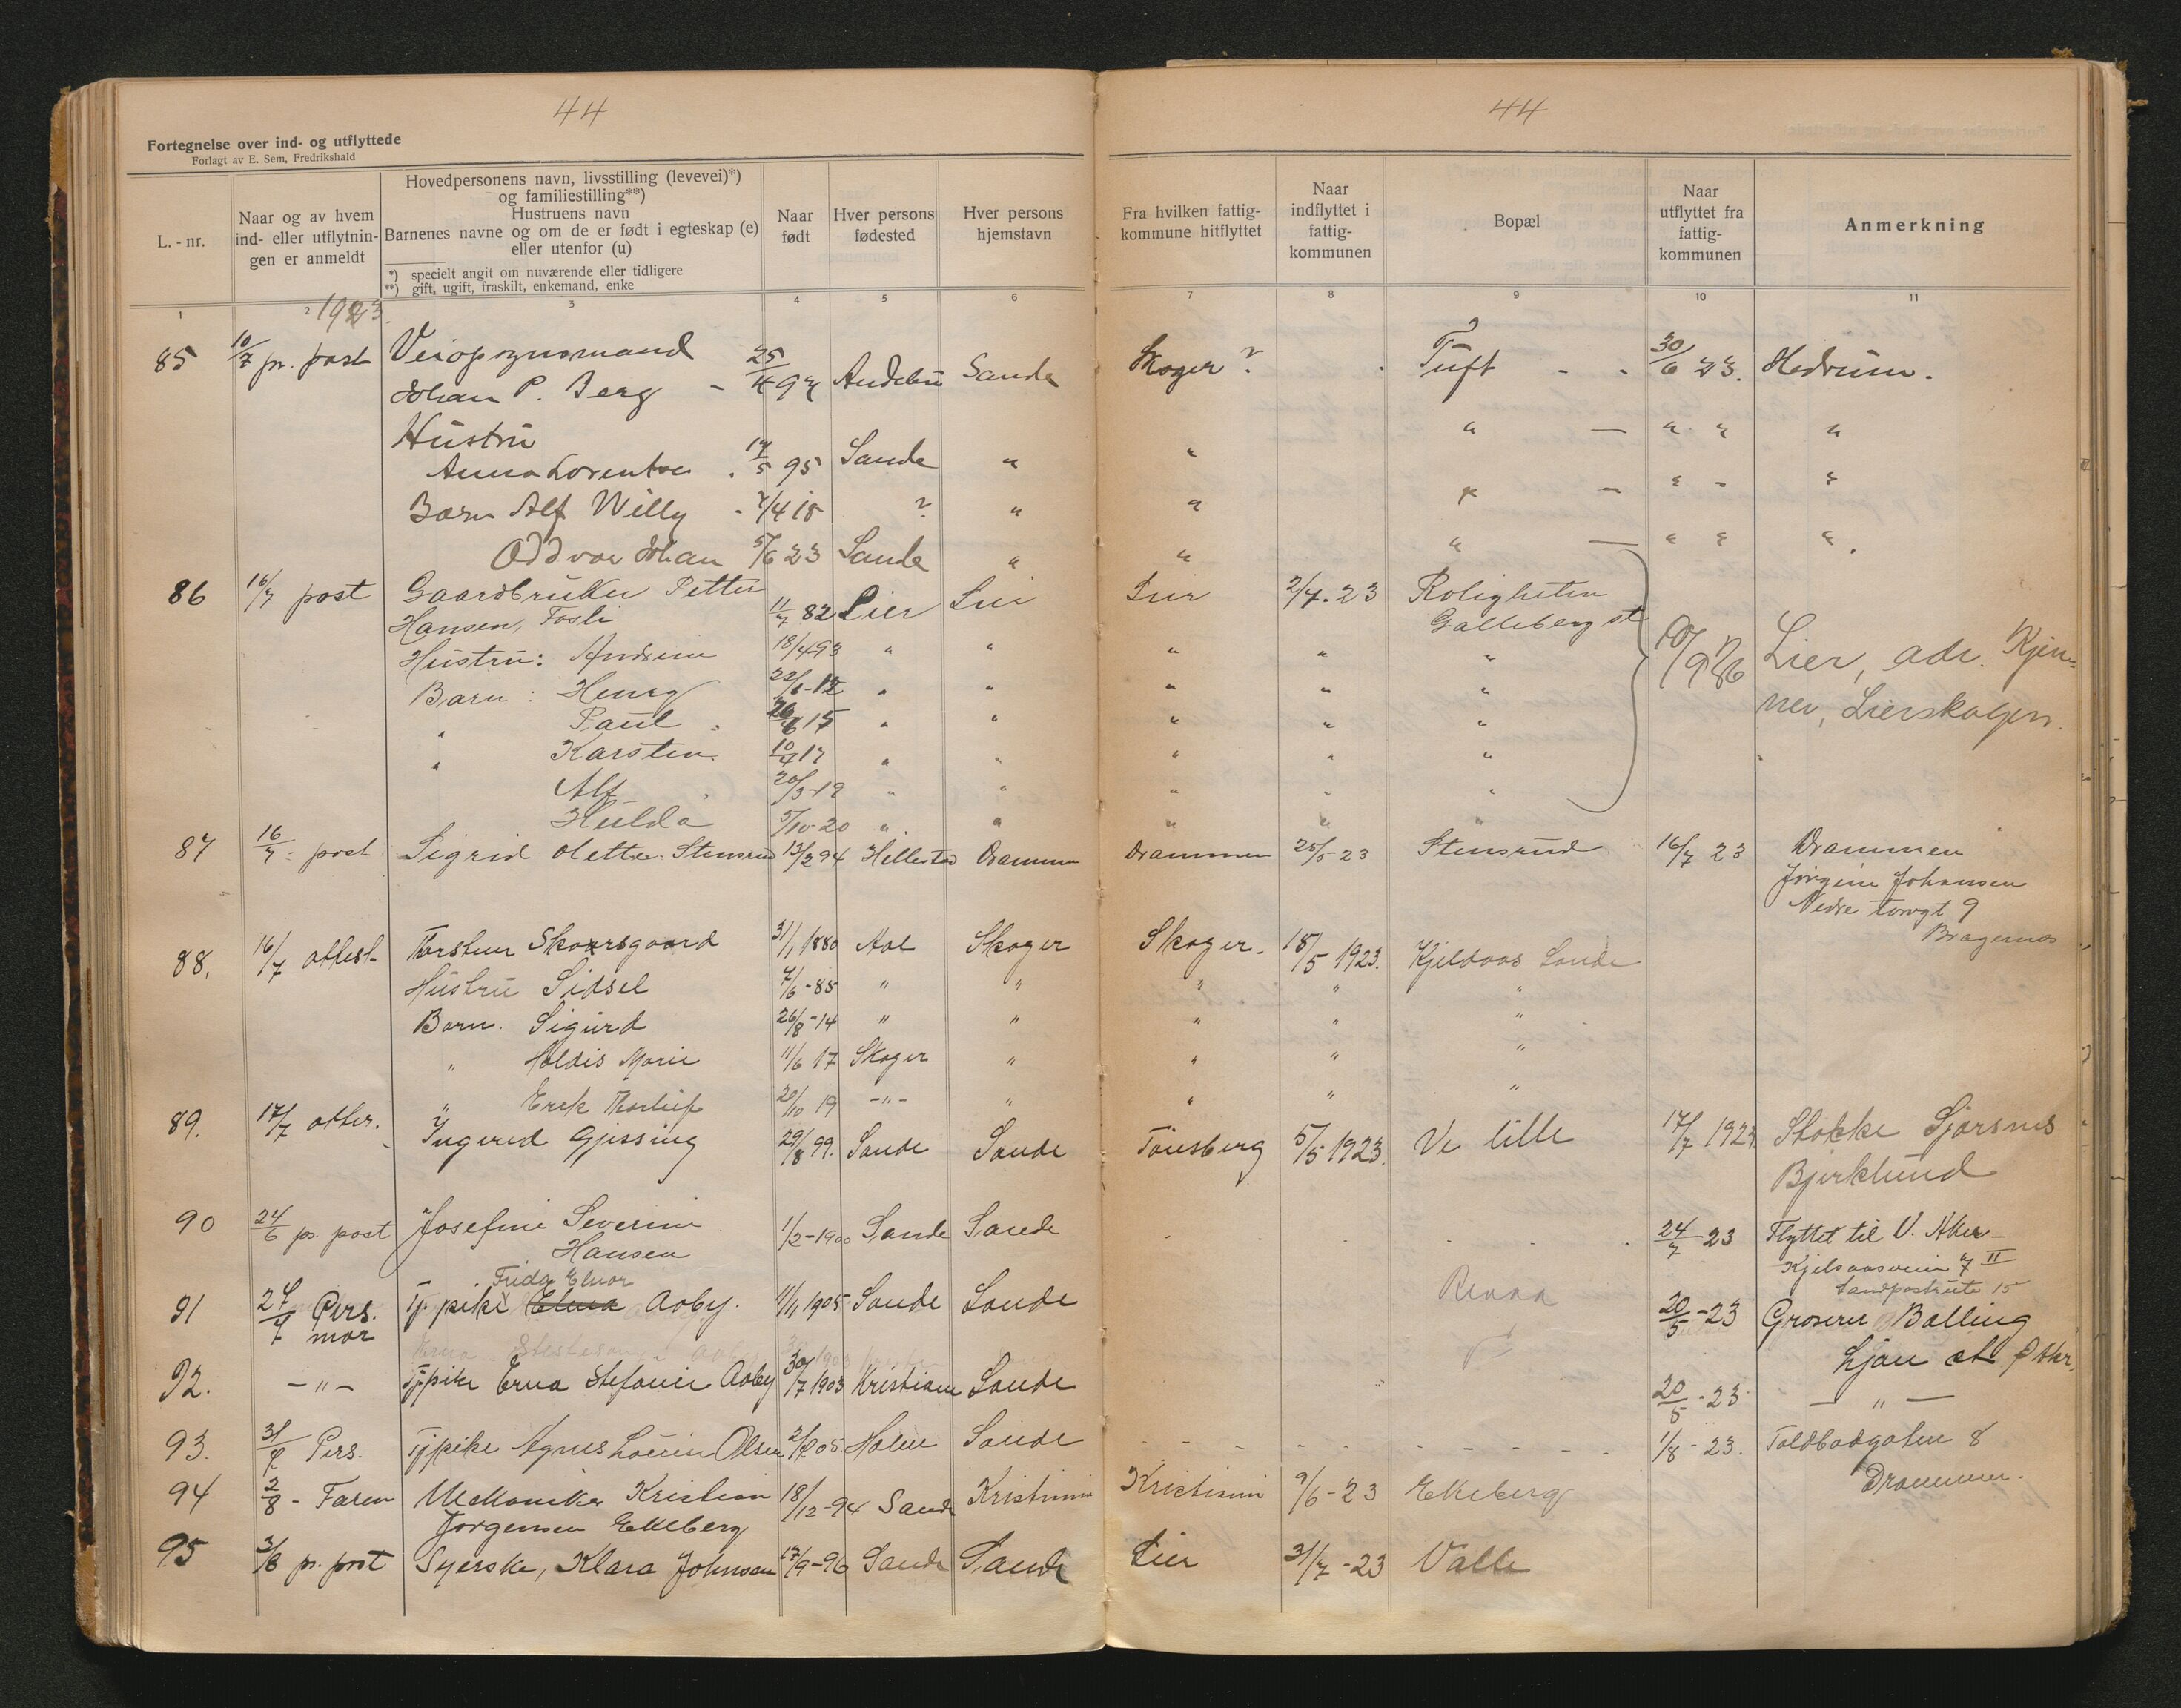 44
44
Fortegnelse over ind- og utflyttede
Forlagt av E. Sem, Fredrikshald
L. - nr.
Naar og av hvem ind- eller utflytnin- gen er anmeldt
Hovedpersonens navn, livsstilling (levevei)*)
og familiestilling**)
Hustruens navn
Barnenes navne og om de er født i egteskap (e)
eller utenfor (u)
*) specielt angit om nuværende eller tidligere
**) gift, ugift, fraskilt, enkemand, enke
Naar født
Hver persons fødested
Hver persons hjemstavn
Fra hvilken fattig- kommune hitflyttet
Naar indflyttet i fattig- kommunen
Bopæl
Naar utflyttet fra fattig- kommunen
Anmerkning
1 2 3 4 5 6 7 8 9 10 11
1923
85 10/7 pr. post Veiopsynsmand
Johan P. Berg - 25/4 97 Andebu Sande Skoger ? Tuft - - 30/6 23. Hedrum.
Hustru
Anna Lorentse 17/5 95 Sande " " " — " " "
Barn Alf Willy - 7/4 18 ? " " " — " - "
Oddvar Johan 5/6 23 Sande " " " — " " "
86 16/7 post Gaardbruker Petter
Hansen, Fosli 11/7 82 Lier Lier Lier 2/4. 23 Roligheten
Galleberg st
Hustru: Andrine 18/4 93 " " " " " 10/9 26 Lier, adr. Kjen=
Barn : Henry 22/6-12 " " " " " ner, Lierskogen.
" Paul 26/6 15 " " " " "
" Karsten 10/4 17 " " " " "
Alf 20/3-19 " " " " "
Hulda 5/10-20 " " " " "
87 16/7 - post Sigrid Olette Stensrud 13/2 94 Hillestad Drammen Drammen 25/5-23 Stensrud 16/7 23 Drammen
Jörgine Johansen
Nedre torvgt 9
Bragernes
88. 16/7 attest Thorstein Skaarsgaard 31/1 1880 Aal Skoger Skoger. 15/5 1923. Kjeldaas Sande
Hustru Sidsel 7/6-85 " " " " "
Barn. Sigurd 26/8-14 " " " " "
" Haldis Marie 11/6 17 Skoger " " " "
" Erik Thorleif 20/10 19 -"- " " " "
89. 17/7 atter. Ingerid Gjessing 29/8 99. Sande Sande Tönsberg 5/5 1923. Ve lille 17/7 1923 Stokke Sjorsnes
Bjerklund
90 24/6 pr. post Josefine Severine
Hansen 1/2-1900 Sande Sande 24/7 23 Flyttet til V. Aker-
Kjelsaasveien 7 II
Landpostrute 15
Frida Elnor
91 27/7 Pers. mor Tj. pike Elna Aaby. 11/11 1905 Sande Sande Revaa 20/5-23 Groserer Balling
Ljan st Ø Akr.
92. -"- Tjpike Erna Stefanie Aaby 30/7 1903 Kristiania Sande " 20/5-23 — " —
93. 31/7 Pers. Tjpike Agnes Louise Olsen 2/9 05. Holm Sande - - - - - - - - 1/8-23. Toldbodgaten 8
Drammen.
94 2/8 - Faren Mekaniker Kristian
Jörgensen Ekeberg 18/12-94 Sande Kristiania Kristiania 9/6-23 Ekeberg
95 3/8 pr. post Syerske, Klara Johnsen 17/9-96 Sande Sande Lier 31/7-23 Valle